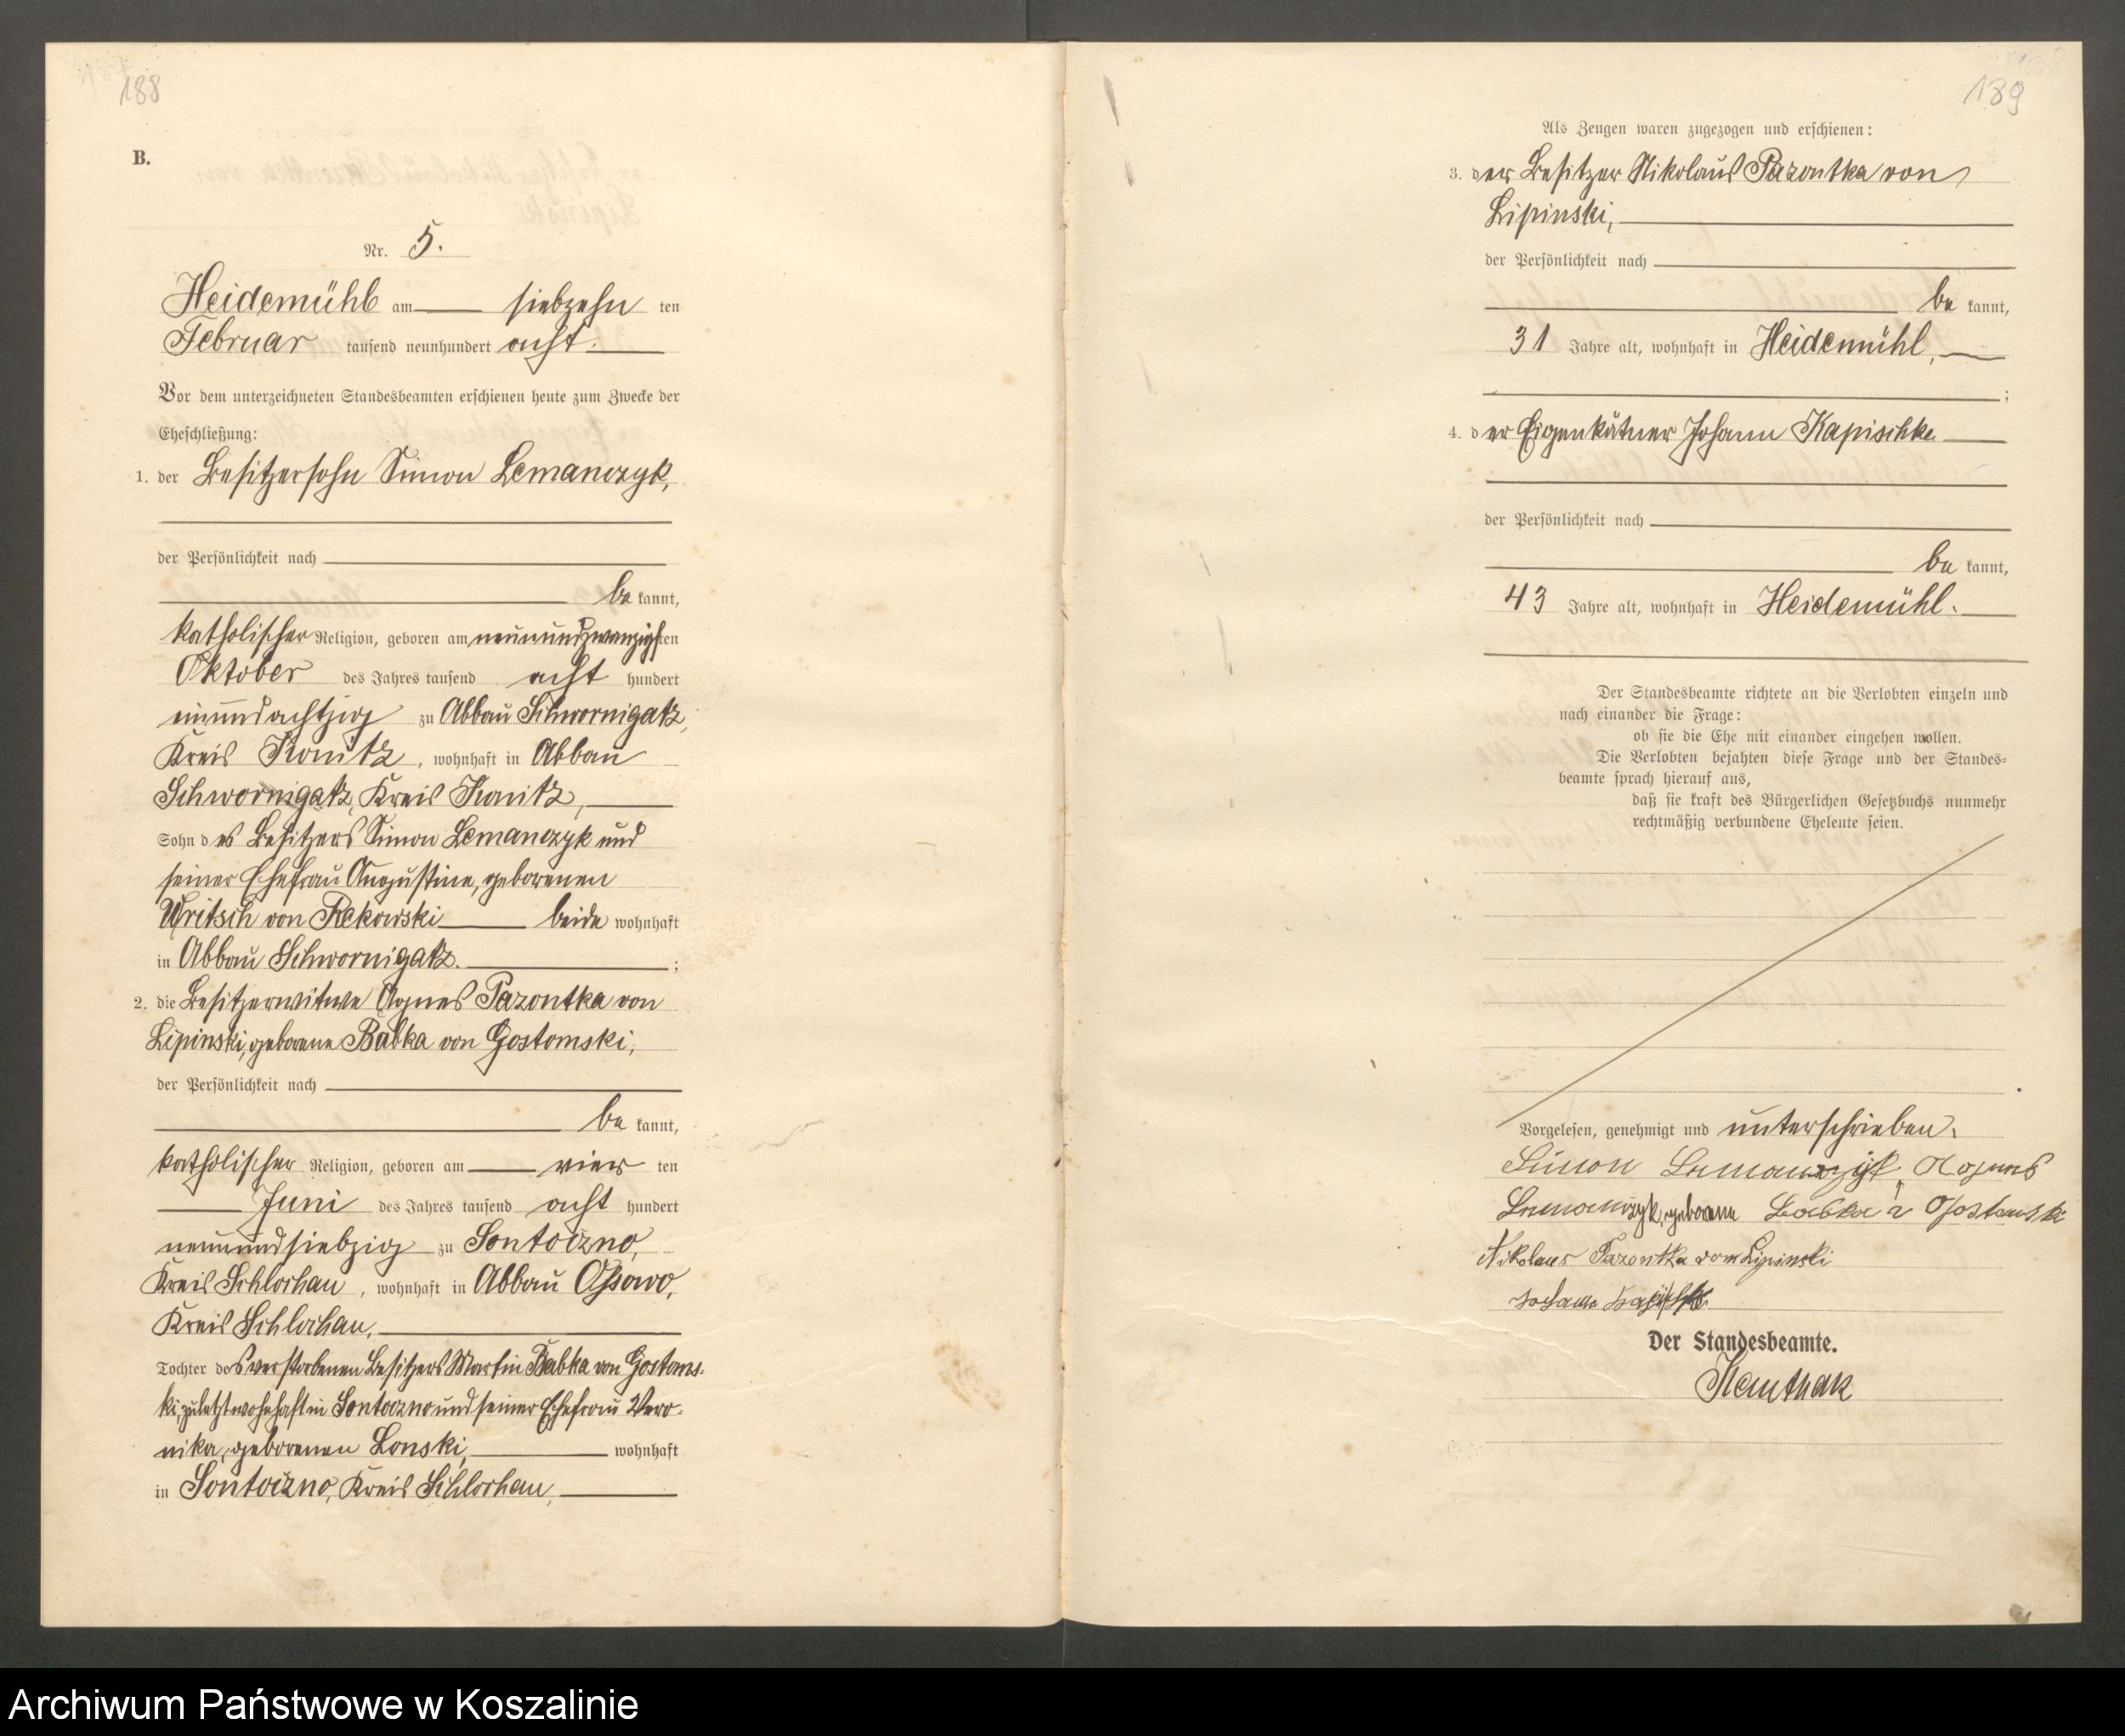 188
B.
Nr. 5.
Heidemühl am siebzehn ten
Februar tausend neunhundert acht.
Vor dem unterzeichneten Standesbeamten erschienen heute zum Zwecke der
Eheschließung:
1. der Besitzersohn Simon Lemanczyk,
der Persönlichkeit nach
be kannt,
katholischer Religion, geboren am neunundzwanzigsten
Oktober des Jahres tausend acht hundert
einundachtzig zu Abbau Schwornigatz,
Kreis Konitz, wohnhaft in Abbau
Schwornigatz, Kreis Konitz,
Sohn des Besitzers Simon Lemanczyk und
seiner Ehefrau Augustine, geborenen
Writsch von Rekowski beide wohnhaft
in Abbau Schwornigatz. ;
2. die Besitzerwitwe Agnes Pazontka von
Lipinski, geborene Babka von Gostomski,
der Persönlichkeit nach
be kannt,
katholischer Religion, geboren am vier ten
Juni des Jahres tausend acht hundert
neunundsiebzig zu Sontoczno,
Kreis Schlochau, wohnhaft in Abbau Ossowo,
Kreis Schlochau,
Tochter des verstorbenen Besitzers Martin Babka von Gostoms-
ki, zuletzt wohnhaft in Sontoczno und seiner Ehefrau Vero-
nika, geborenen Lonski, wohnhaft
in Sontoczno, Kreis Schlochau,
189
Als Zeugen waren zugezogen und erschienen:
3. der Besitzer Nikolaus Pazontka von
Lipinski,
der Persönlichkeit nach
be kannt,
31 Jahre alt, wohnhaft in Heidemühl,
;
4. der Eigenkätner Johann Kapischke
der Persönlichkeit nach
be kannt,
43 Jahre alt, wohnhaft in Heidemühl.
Der Standesbeamte richtete an die Verlobten einzeln und
nach einander die Frage:
ob sie die Ehe mit einander eingehen wollen.
Die Verlobten bejahten diese Frage und der Standes-
beamte sprach hierauf aus,
daß sie kraft des Bürgerlichen Gesetzbuchs nunmehr
rechtmäßig verbundene Eheleute seien.
Vorgelesen, genehmigt und unterschrieben.
Simon Lemanczyk, Agnes
Lemanczyk, geborene Babka v Gostomski
Nikolaus Pazontka von Lipinski
Johann
Der Standesbeamte.
Archiwum Państwowe w Koszalinie